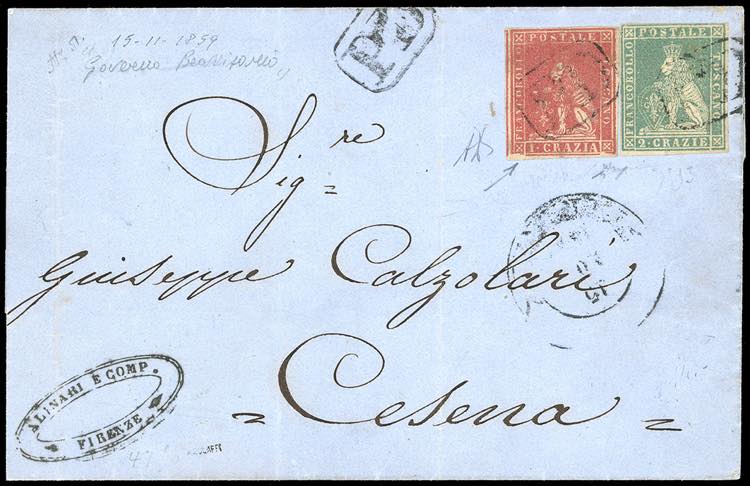 15-11-1859
Governo
PD
FRANCOBOLLO POSTALE TOSCANO
1·CRAZIA
FRANCOBOLLO POSTALE TOSCANO
2·CRAZIE
Sig.re
Giuseppe Calzolari
= Cesena =
ALINARI E COMP.
FIRENZE